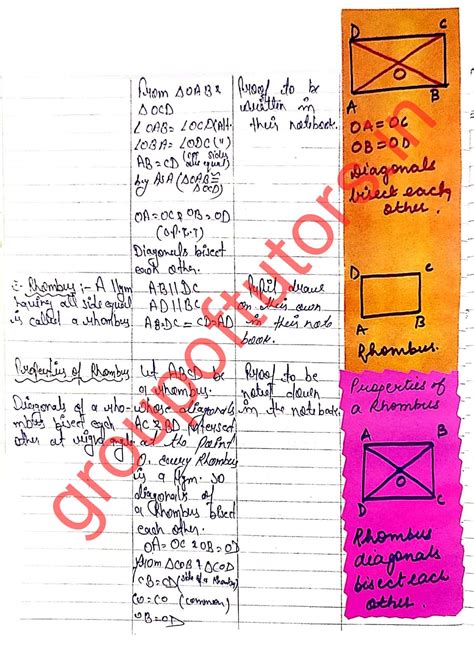 From △OAB &
△OCD
∠OAB = ∠OCD (Alt.
∠OBA = ∠ODC (")
AB = CD (opp sides are equal)
by ASA (△OAB ≅ △OCD)
OA = OC & OB = OD
(C.P.C.T)
Diagonals bisect
each other.
Proof to be
written in
their notebook.
Rhombus :- A llgm
having all side equal
is called a rhombus.
AB ll DC
AD ll BC
AB = DC = CD = AD
Pupil draws
on their own
in their note
book.
Properties of Rhombus
Diagonals of a rho-
mbus bisect each
other at right angle
Let ABCD be
a rhombus.
whose diagonals
AC & BD intersect
at the point
O. every Rhombus
is a llgm. so
diagonals of
a Rhombus bisect
each other.
OA = OC & OB = OD
from △COB & △COD
CB = CD (side of a rhombus)
CO = CO (common)
OB = OD
Proof to be
noted down
in the notebook
D C
O
A B
OA = OC
OB = OD
Diagonals
bisect each
other.
D C
A B
Rhombus.
Properties of
a Rhombus
A B
O
D C
Rhombus
diagonals
bisect each
other.
groupoftutors.in